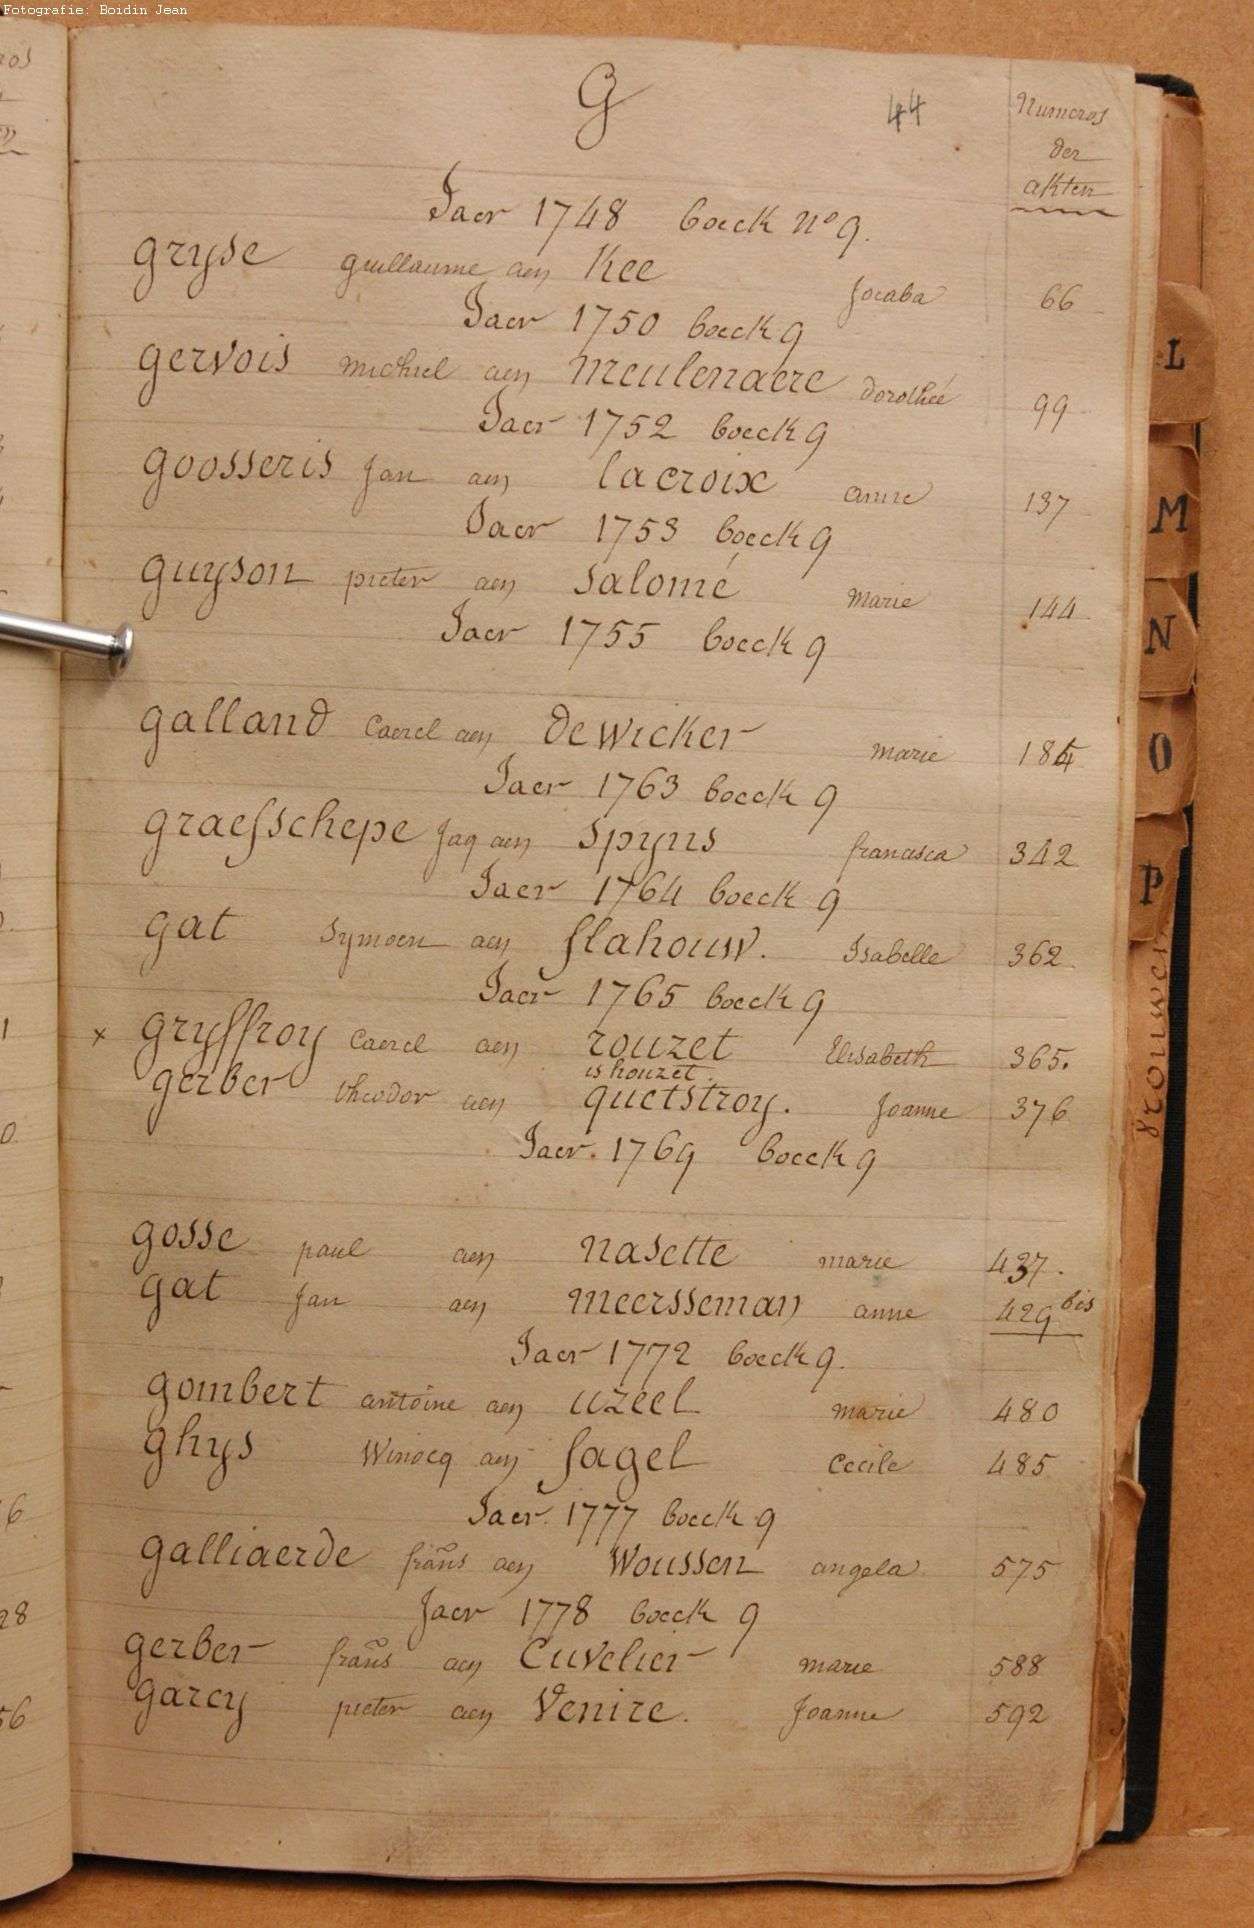 Fotografie: Boidin Jean
G 44 Numeros
der
akten
Jaer 1748 boeck nº 9.
gryse guillaume aen Kee Jocaba 66
Jaer 1750 boeck 9
gervois michiel aen meulenaere dorothée 99
Jaer 1752 boeck 9
goosseris Jan aen lacroix anne 137
Jaer 1753 boeck 9
guyson pieter aen salomé marie 144
Jaer 1755 boeck 9
galland Caerel aen de wicker marie
Jaer 1763 boeck 9
graefschepe Jaq aen spyns francisca 342
Jaer 1764 boeck 9
gat symoen aen flahouw. Isabelle 362
Jaer 1765 boeck 9
x gryffroy Caerel aen rouzet Elisabeth 365.
is houzet.
gerber theodor aen quetstroy. Joanne 376
Jaer. 1769 boeck 9
gosse paul aen nasette marie 437.
gat Jan aen meersseman anne 429 bis
Jaer 1772 boeck 9.
gombert antoine aen uzeel marie 480
ghys Winocq aen fagel Cecile 485
Jaer. 1777 boeck 9
galliaerde frans aen Woussen angela 575
Jaer 1778 boeck 9
gerber frans aen Cuvelier marie 588
garcy pieter aen Venire. Joanne 592
L
M
N
O
P